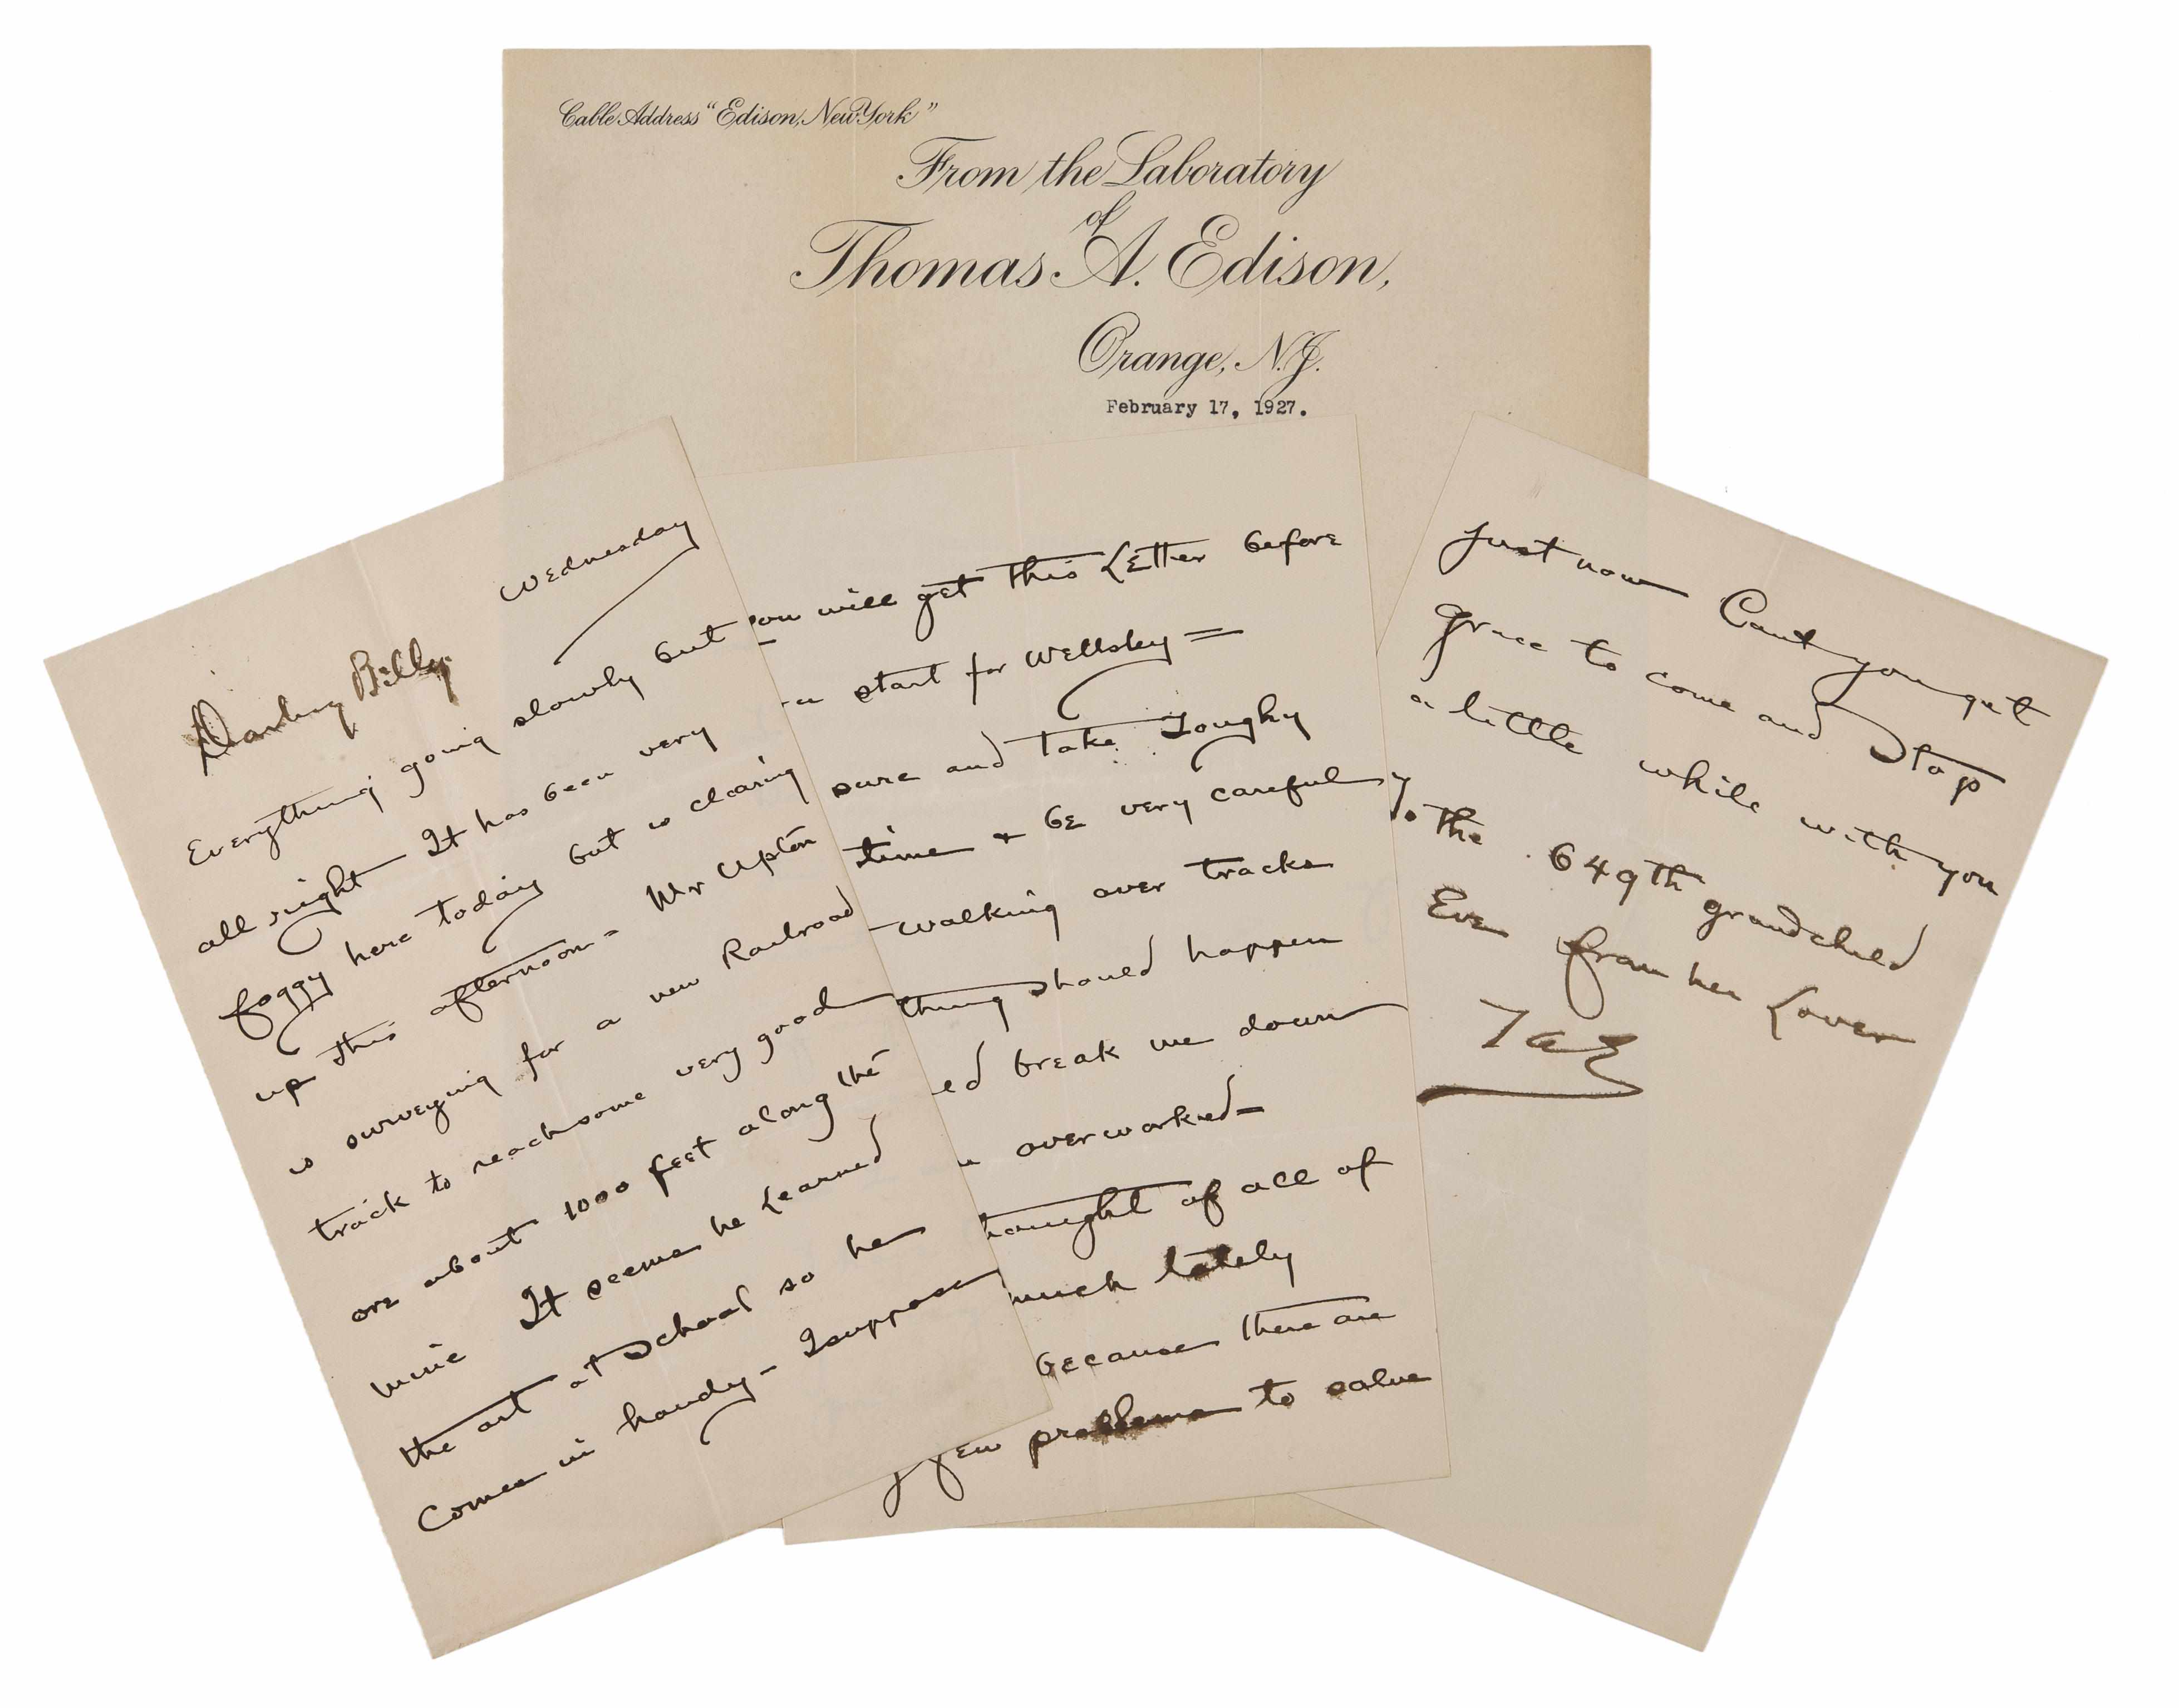 Cable Address "Edison, New York"
From the Laboratory
of
Thomas A. Edison,
Orange, N.J.
February 17, 1927.
Wednesday
Darling Billy
Everything going slowly but
all right It has been very
foggy here today but is clearing
up this afternoon - Mr Upton
is surveying for a new Railroad
track to reach some very good
ore about 1000 feet along the
mine It seems he Learned
the art at School so he
Comes in handy - I suppose
you will get this Letter before
start for Wellsley =
sure and take Toughy
time + be very careful
walking over tracks
thing should happen
ed break me down
overworked -
thought of all of
much lately
because there are
few problems to solve
just now Cant you get
grace to come and Stop
a little while with you
To the 649th grandchild
Eve from her Lover
TAE